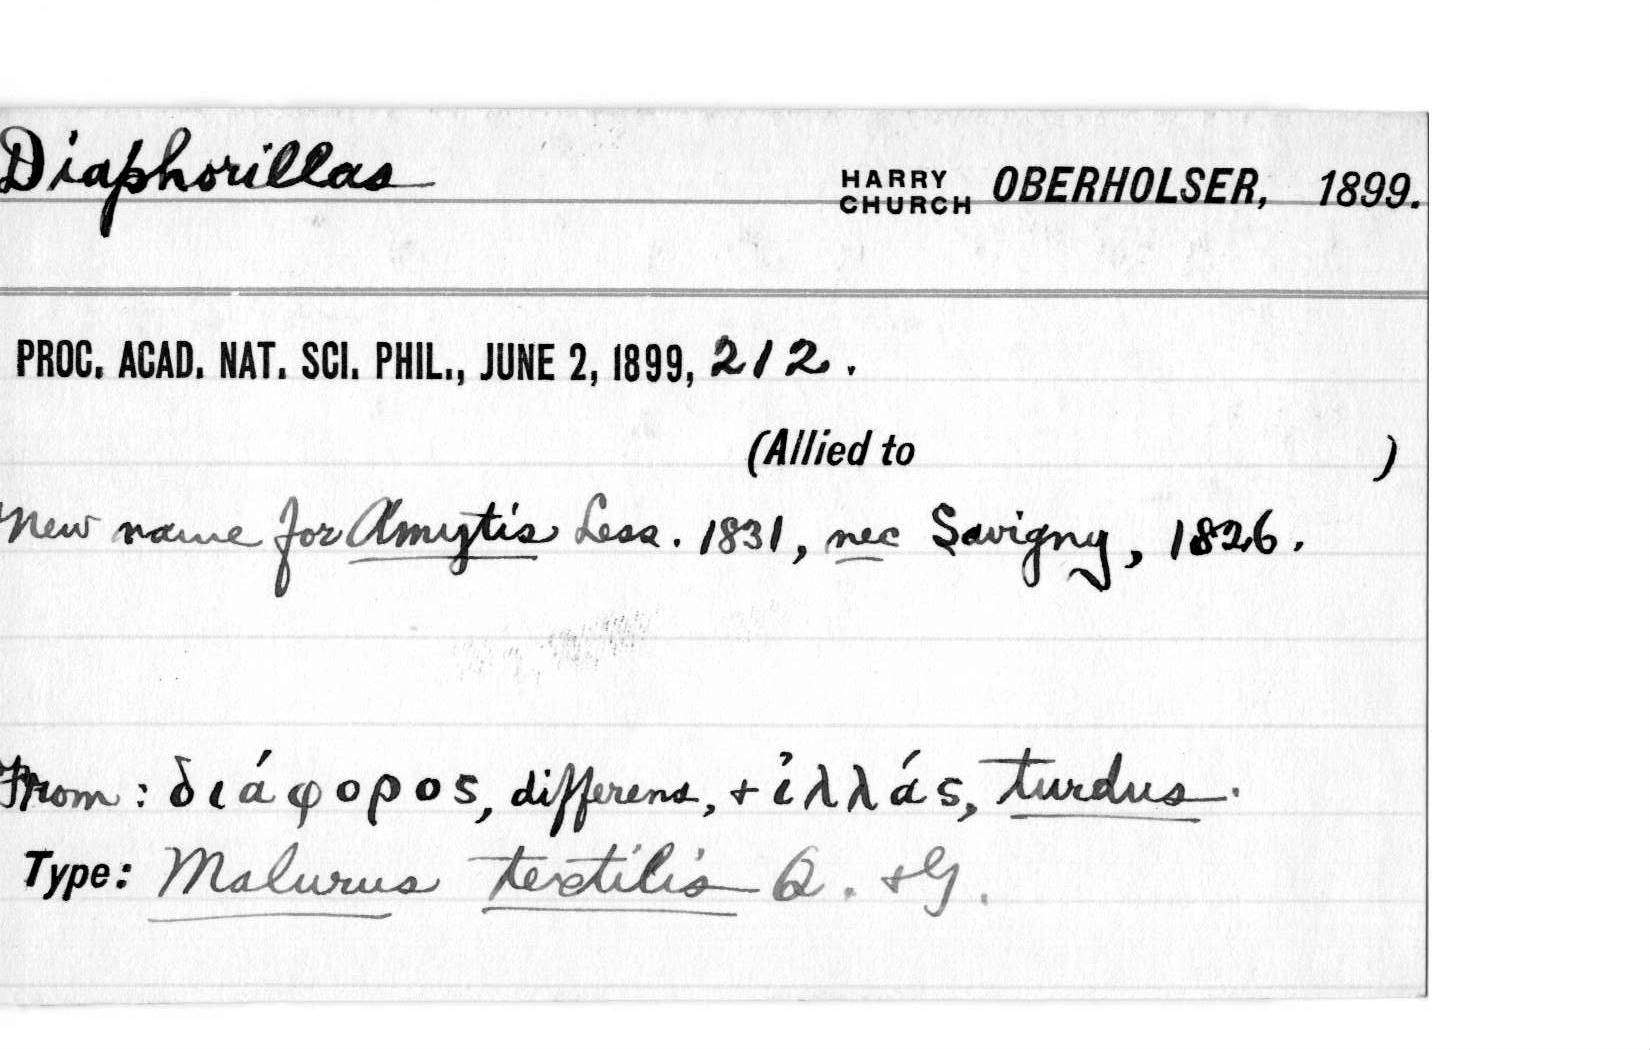 Diaphorillas HARRY CHURCH OBERHOLSER, 1899.
PROC. ACAD. NAT. SCI. PHIL., JUNE 2, 1899, 212.
(Allied to )
New name for Amytis Less. 1831, nec Savigny, 1826.
From: διάφορος, differens, + ἰλλάς, turdus.
Type: Malurus textilis Q. + G.